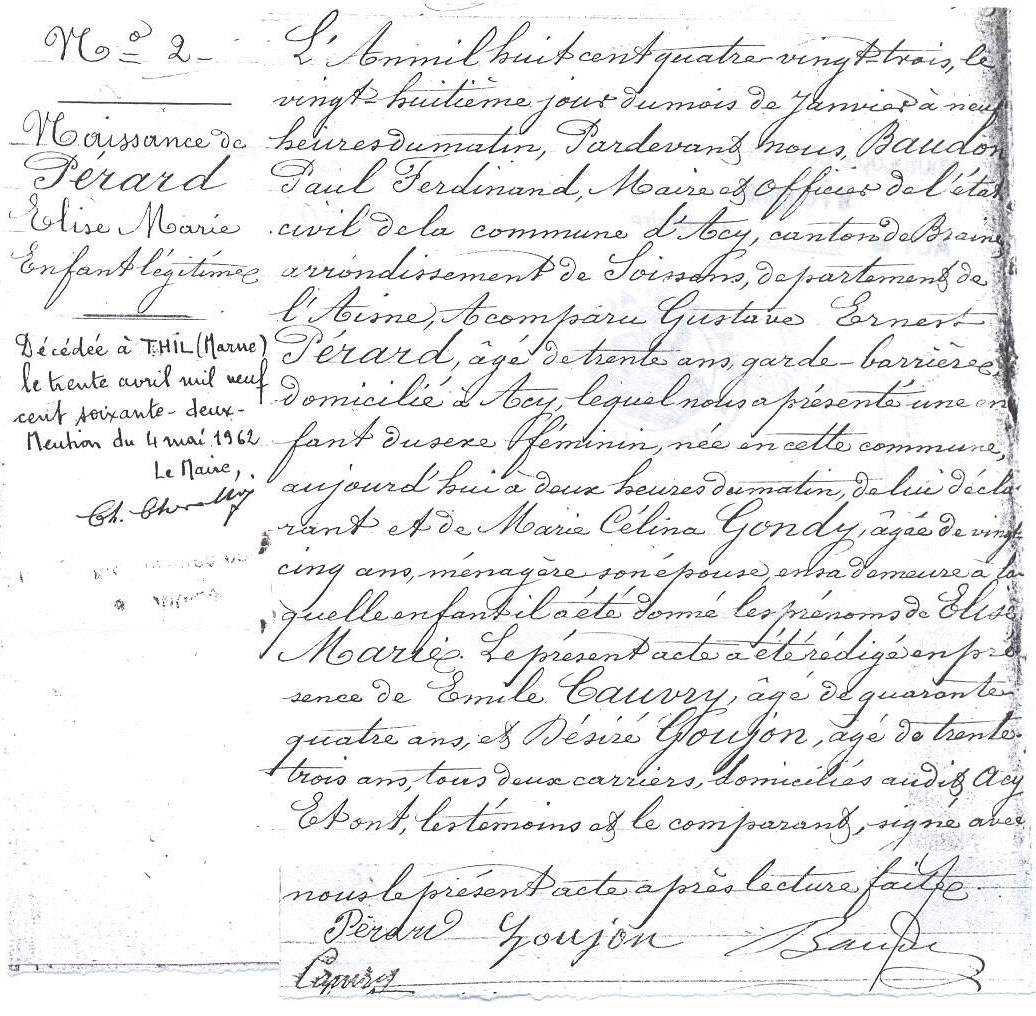 N° 2
Naissance de
Pérard
Elise Marie
Enfant légitime
Décédée à THIL (Marne)
le trente avril mil neuf
cent soixante-deux-
Mention du 4 mai 1962
Le Maire,
L'An mil huit cent quatre-vingt-trois, le
vingt-huitième jour du mois de Janvier à neuf
heures du matin, Pardevant nous, Baudon
Paul Ferdinand, Maire et officier de l'état
civil de la commune d'Acy, canton de Braine,
arrondissement de Soissons, departement de
l'Aisne, A comparu Gustave Ernest
Pérard, âgé de trente ans, garde-barrière,
domicilié à Acy, lequel nous a présenté une en
fant du sexe féminin, née en cette commune,
aujourd'hui à deux heures du matin, de lui décla
rant et de Marie Célina Gondy, âgée de vingt-
cinq ans, ménagère son épouse, en sa demeure à la
quelle enfant il a été donné les prénoms de Elise
Marie. Le présent acte a été rédigé en pré
sence de Emile Cauvry, âgé de quarante
quatre ans, et Désiré Goujon, âgé de trente-
trois ans, tous deux carriers, domiciliés audit Acy
Et ont, les témoins et le comparant, signé avec
nous le présent acte après lecture faite
Pérard Goujon Baudon
Cauvry